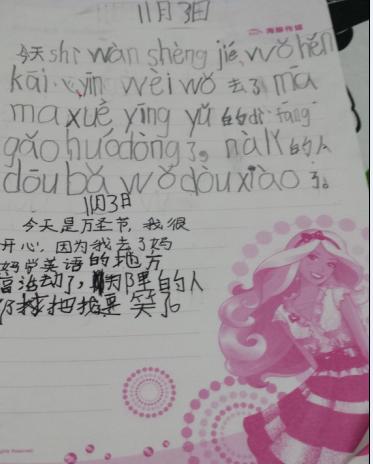 11月3日
海雕传媒
今天shì wàn shèng jié, wǒ hěn
kāi xīn yīn wèi wǒ 去了mā
ma xué yīng yǔ 的dì fāng
gǎo huó dòng了。nà lǐ的人
dōu bǎ wǒ dòu xiào 了。
11月3日
今天是万圣节,我很
开心,因为我去了妈
妈学英语的地方
搞活动了,那里的人
都把我 笑了。
Rights Reserved